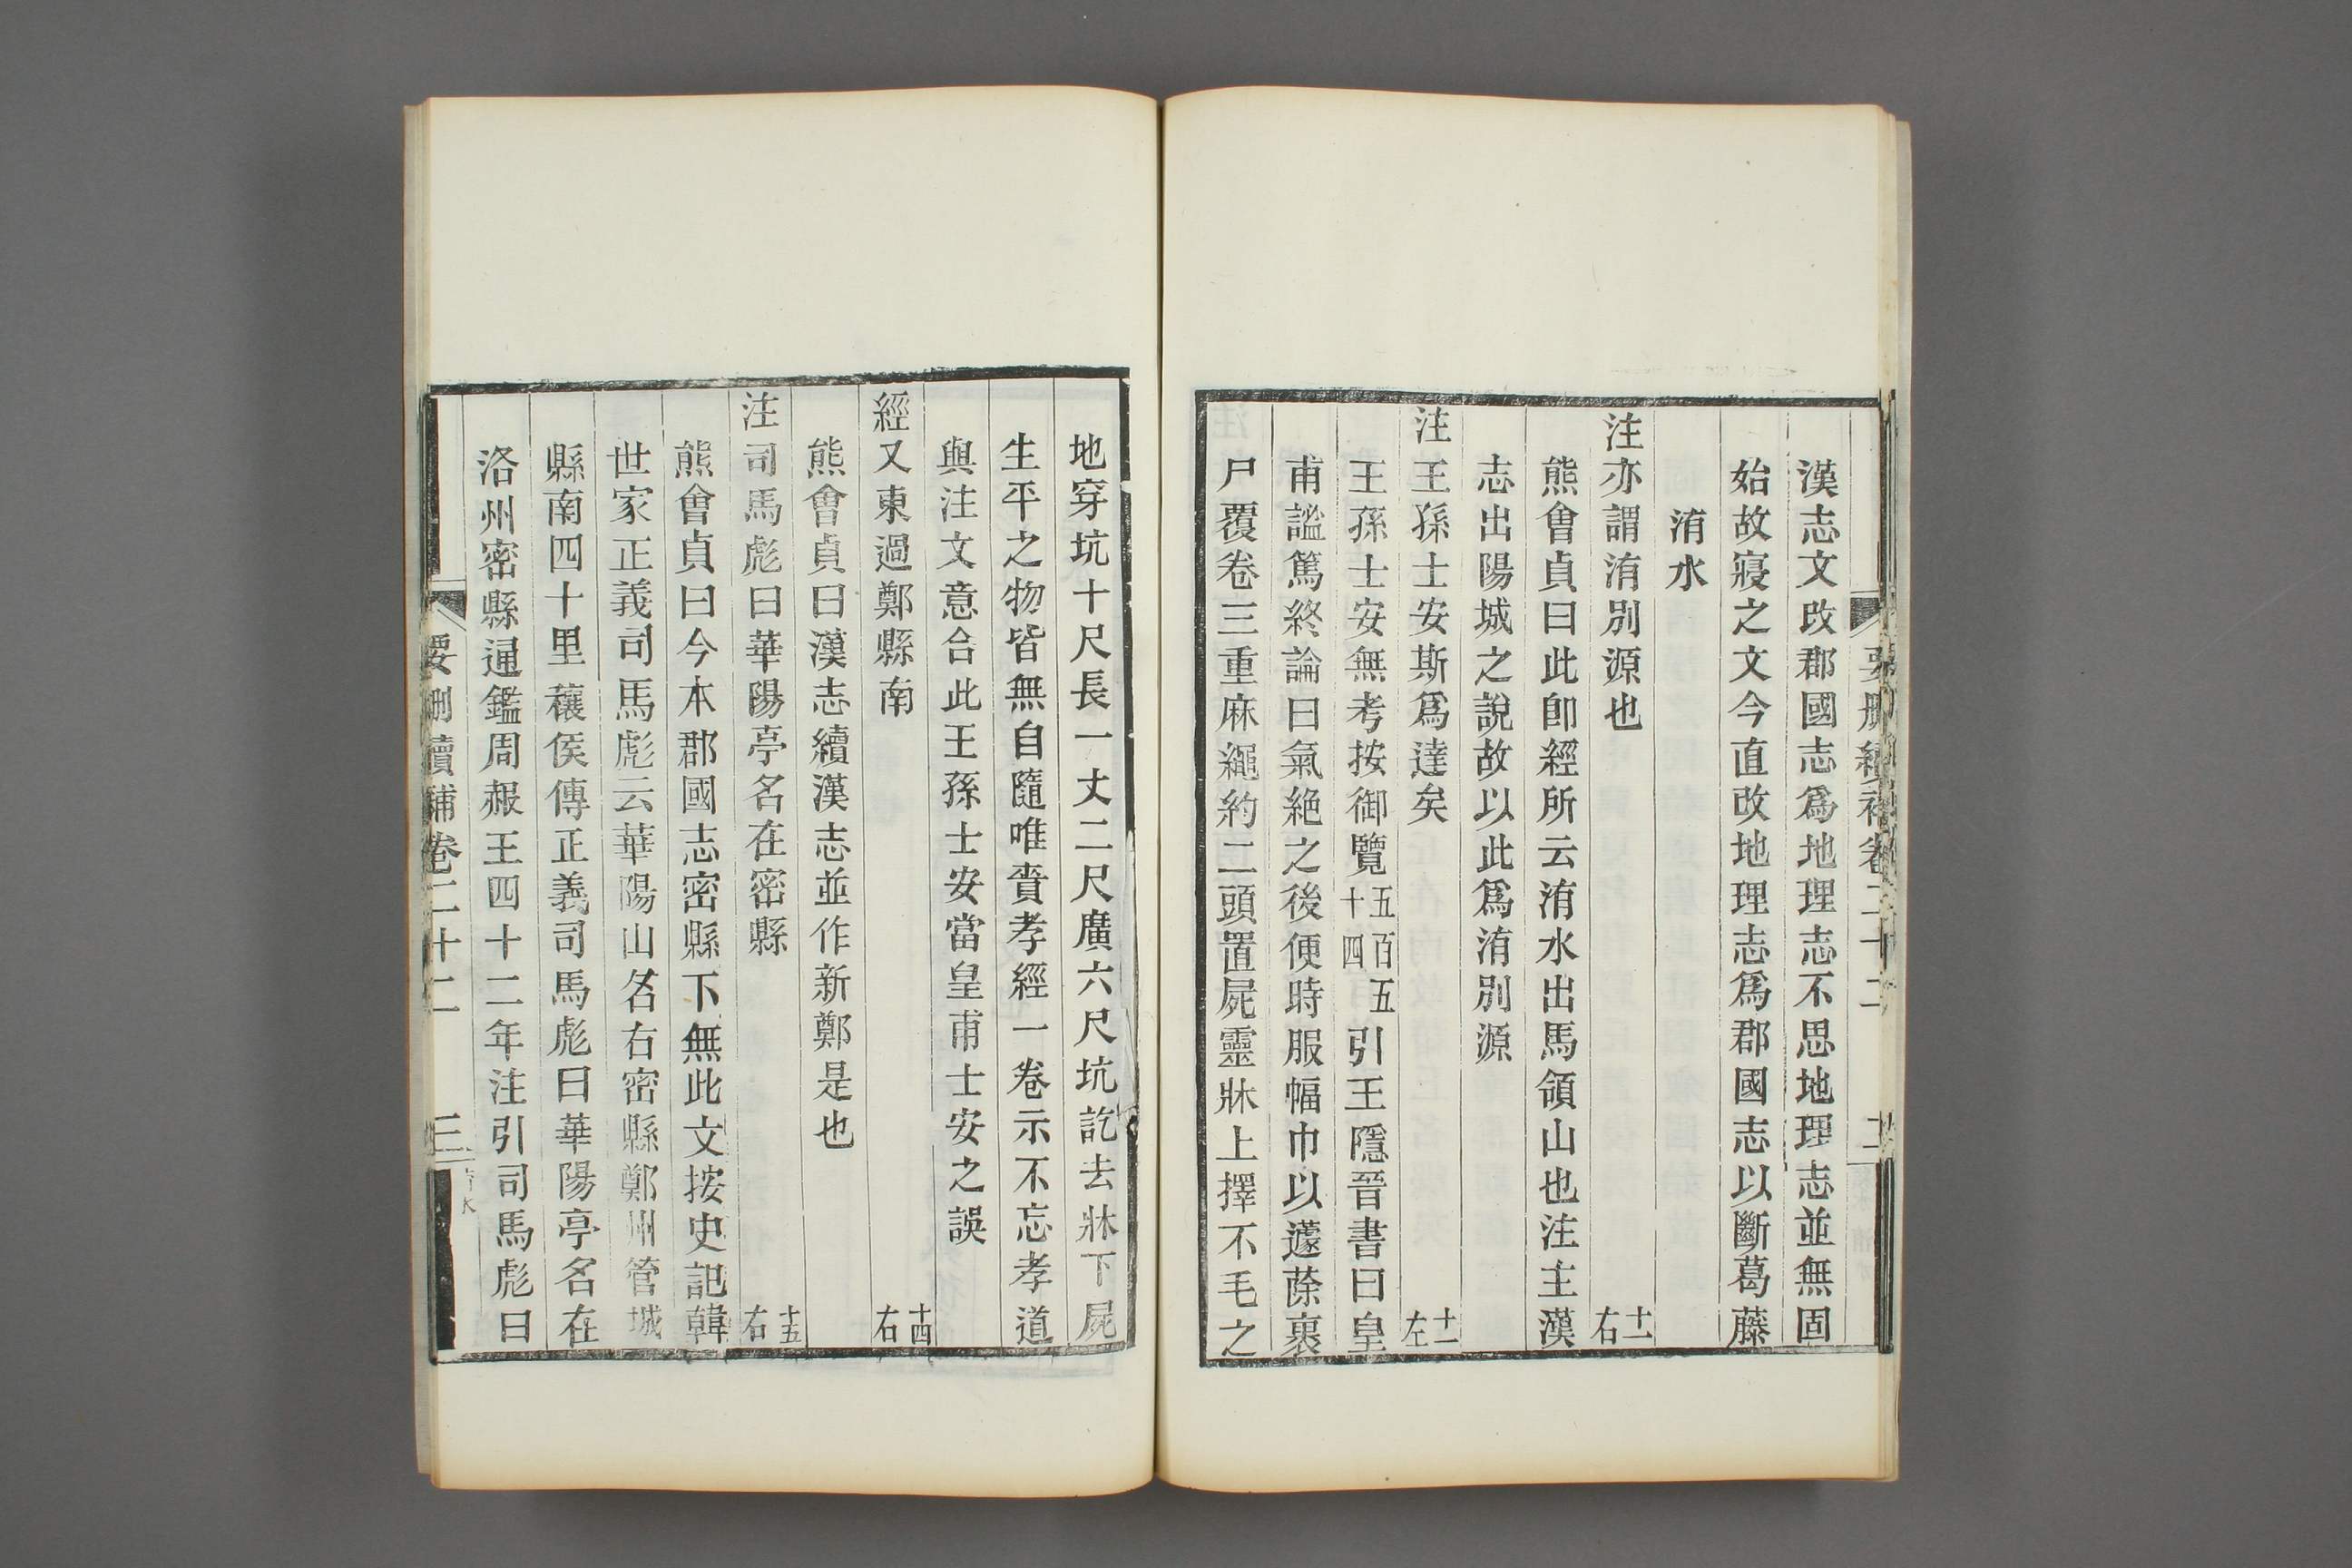 漢志文改郡國志爲地理志不思地理志並無固
始故寢之文今直改地理志爲郡國志以斷葛藤
洧水
注亦謂洧別源也十一右
熊會貞曰此卽經所云洧水出馬領山也注主漢
志出陽城之說故以此爲洧別源
注王孫士安斯爲達矣十一左
王孫士安無考按御覽五百五十四引王隱晉書曰皇
甫謐篤終論曰氣絶之後便時服幅巾以蘧蒢裹
尸覆卷三重麻繩約二頭置屍靈牀上擇不毛之
要刪續補卷二十二 二
地穿坑十尺長一丈二尺廣六尺坑訖去牀下屍
生平之物皆無自隨唯賫孝經一卷示不忘孝道
與注文意合此王孫士安當皇甫士安之誤
經又東過鄭縣南十四右
熊會貞曰漢志續漢志並作新鄭是也
注司馬彪曰華陽亭名在密縣十五右
熊會貞曰今本郡國志密縣下無此文按史記韓
世家正義司馬彪云華陽山名右密縣鄭州管城
縣南四十里穰侯傳正義司馬彪曰華陽亭名在
洛州密縣通鑑周赧王四十二年注引司馬彪曰
要刪續補卷二十二 三